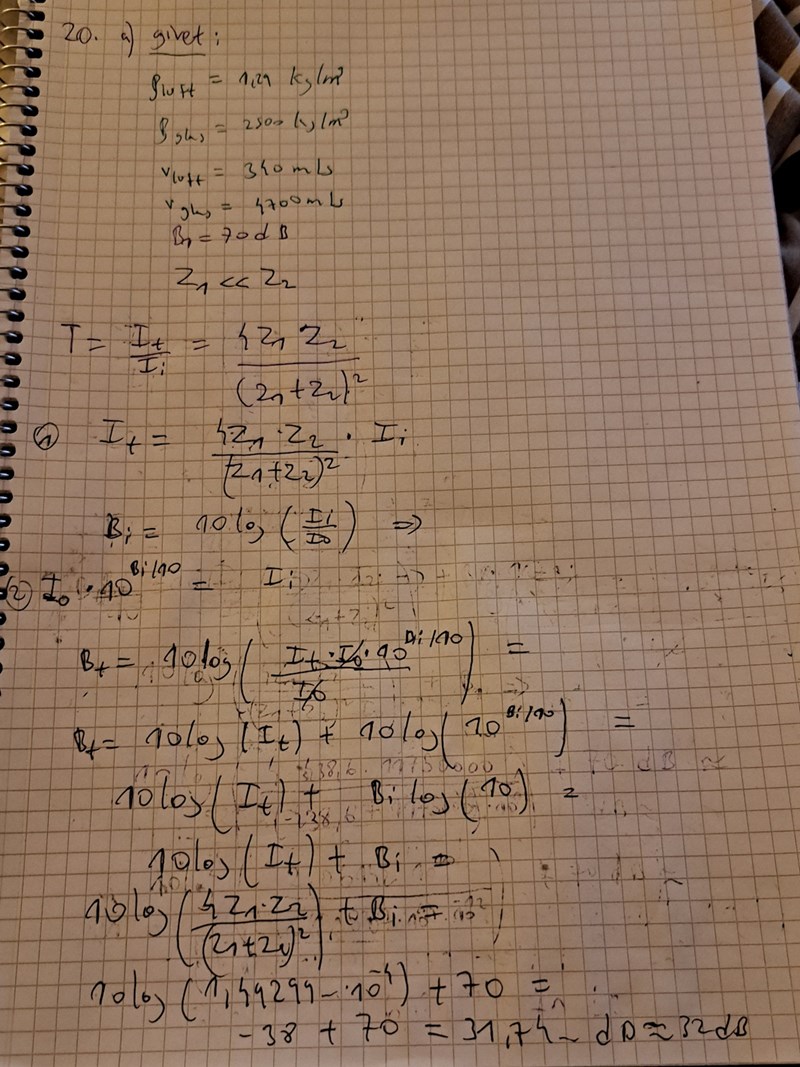 20. a) givet:
ρluft = 1,29 kg/m³
ρglas = 2500 kg/m³
vluft = 340 m/s
vglas = 4700 m/s
B₁ = 70 dB
Z₁ << Z₂
T = It/Ii = 4Z₁ Z₂/(Z₁+Z₂)²
① It = 4Z₁·Z₂/(Z₁+Z₂)² · Ii
Bi = 10 log (Ii/I₀) ⇒
② I₀ · 10^(Bi/10) = Ii
Bt = 10 log (It·I₀·10^(Bi/10)/I₀) =
Bt = 10 log (It) + 10 log (10^(Bi/10)) =
10 log (It) + Bi log (10) =
10 log (It) + Bi =
10 log (4Z₁·Z₂/(Z₁+Z₂)²) + Bi =
10 log (1,49299...·10⁻⁴) + 70 =
-38 + 70 = 31,74... dB ≈ 32 dB